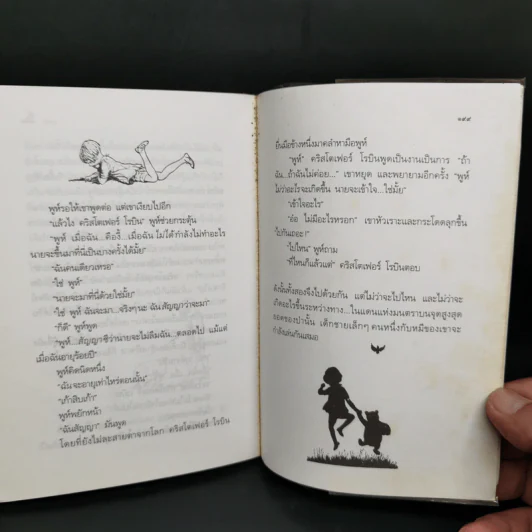 พูห์รอให้เขาพูดต่อ แต่เขาเงียบไปอีก
"แล้วไง คริสโตเฟอร์ โรบิน" พูห์ช่วยกระตุ้น
"พูห์ เมื่อฉัน...คืองี้...เมื่อฉัน ไม่ได้กำลังไม่ทำอะไร
นายจะขึ้นมาที่นี่เป็นบางครั้งได้มั้ย"
"ฉันคนเดียวเหรอ"
"ใช่ พูห์"
"นายจะมาที่นี่ด้วยใช่มั้ย"
"ใช่ พูห์ ฉันจะมา...จริงๆ นะ ฉันสัญญาว่าจะมา"
"ก็ดี" พูห์พูด
"พูห์...สัญญาซิว่านายจะไม่ลืมฉัน...ตลอดไป แม้แต่
เมื่อฉันอายุร้อยปี"
พูห์คิดนิดหนึ่ง
"ฉันจะอายุเท่าไหร่ตอนนั้น"
"เก้าสิบเก้า"
พูห์พยักหน้า
"ฉันสัญญา" มันพูด
โดยที่ยังไม่ละสายตาจากโลก คริสโตเฟอร์ โรบิน
๑๙๙
ยื่นมือข้างหนึ่งมาคลำหามือพูห์
"พูห์" คริสโตเฟอร์ โรบินพูดเป็นงานเป็นการ "ถ้า
ฉัน...ถ้าฉันไม่ค่อย..." เขาหยุด และพยายามอีกครั้ง "พูห์
ไม่ว่าอะไรจะเกิดขึ้น นายจะเข้าใจ...ใช่มั้ย"
"เข้าใจอะไร"
"อ๋อ ไม่มีอะไรหรอก" เขาหัวเราะและกระโดดลุกขึ้น
"ไปกันเถอะ!"
"ไปไหน" พูห์ถาม
"ที่ไหนก็แล้วแต่" คริสโตเฟอร์ โรบินตอบ
ดังนั้นทั้งสองจึงไปด้วยกัน แต่ไม่ว่าจะไปไหน และไม่ว่าจะ
เกิดอะไรขึ้นระหว่างทาง...ในแดนแห่งมนตราบนจุดสูงสุด
ของป่านั้น เด็กชายเล็กๆ คนหนึ่งกับหมีของเขาจะ
กำลังเล่นกันเสมอ